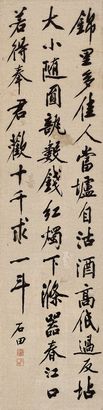 錦里多佳人當壚自沽酒高低過反坫
大小隨圓瓿數錢紅燭下滌器春江口
若得奉君歡十千求一斗
石田